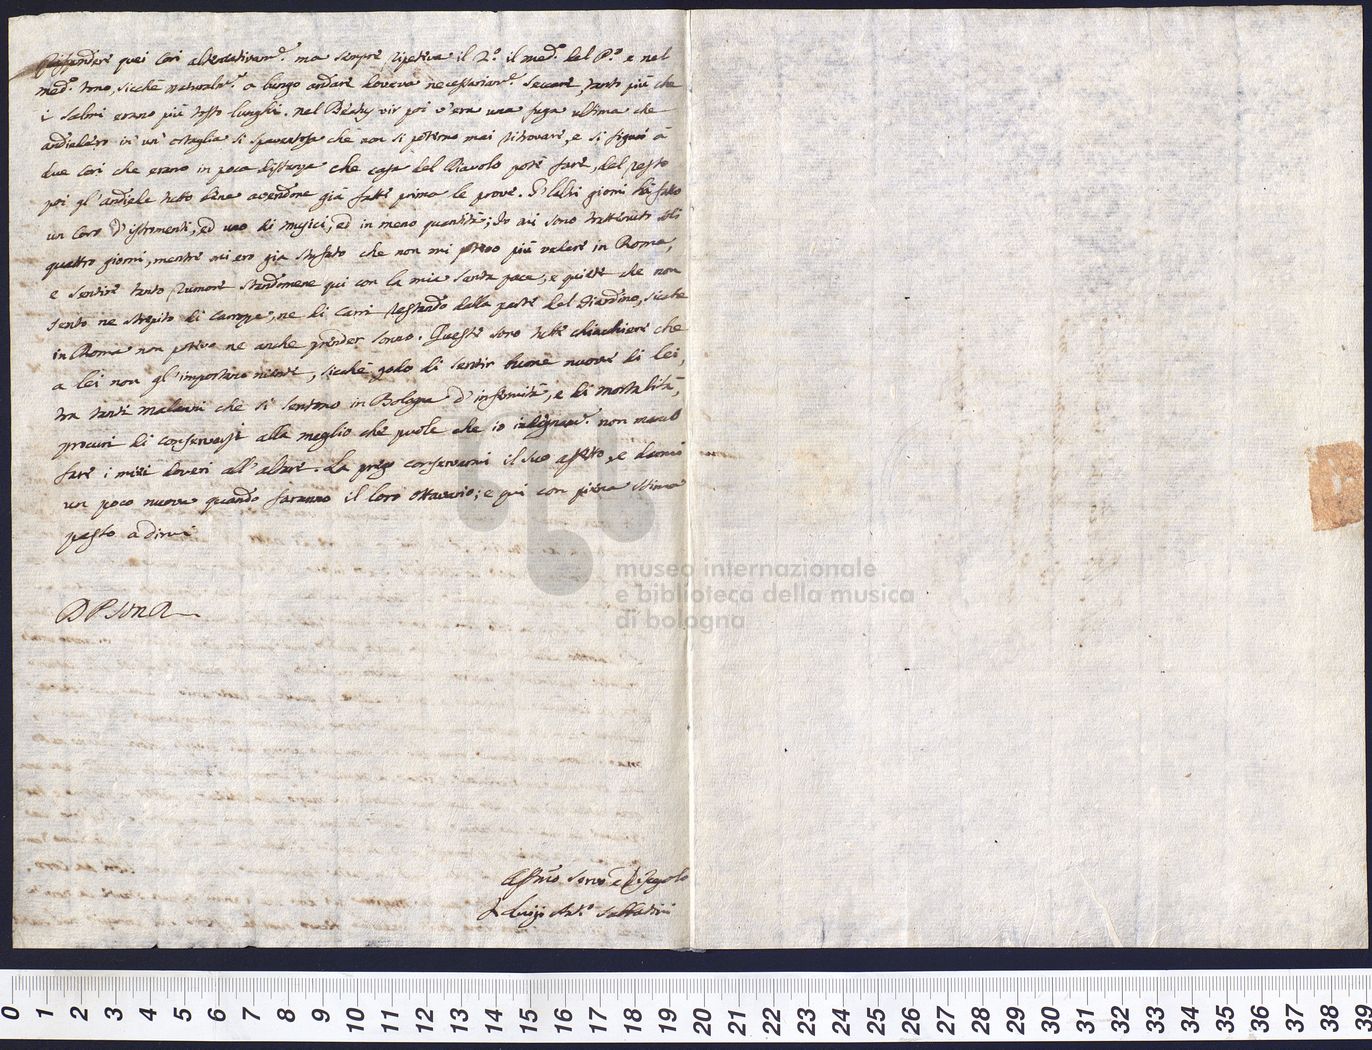 Rispondere quei Cori alternativam.e ma sempre ripeteva il 2.o il med.o del P.o e nel
med.o tono, sicche naturalm.e a lungo andare doveva necessariam.e seccare, tanto più che
i salmi erano più tosto lunghi. nel Beatus vir poi v'era una fuga ultima che
andiedero in un' si spaventosa che non si poterno mai ritrovare, e si figuri a
due Cori che erano in poca distanza che cosa del Diavolo potè fare, del resto
poi gl'andiede tutto bene avendone già fatte prima le prove. Gl'altri giorni hà fatto
un Coro d'istrumenti, ed uno di musici, ed in meno quantità; Io mi sono trattenuto
quattro giorni, mentre mi ero già stufato che non mi potevo più vedere in Roma,
e sentire tanto rumore standomene qui con la mia santa pace, e quiete che non
sento ne strepito di carozze, ne di carri restando dalla parte del Giardino, sicche
in Roma non potevo ne anche prender sonno. Queste sono tutte chiachiere che
a lei non gl'importano niente, sicche godo di sentir buone nuove di lei,
tra tanti malanni che si sentono in Bologna d'infermità, e di mortalità,
procuri di conservarsi alla meglio che puole che io indegnam.e non manco
fare i miei doveri all'altare. La prego conservarmi il suo affetto, e darmi
un poco nuova quando faranno il loro ottavario; e qui con piena stima
passo a dirmi
D P S Vra
Aff.mo Servo e Discepolo
F. Luigi Ant.o Sabbatini
museo internazionale
e biblioteca della musica
di bologna
0 1 2 3 4 5 6 7 8 9 10 11 12 13 14 15 16 17 18 19 20 21 22 23 24 25 26 27 28 29 30 31 32 33 34 35 36 37 38 39